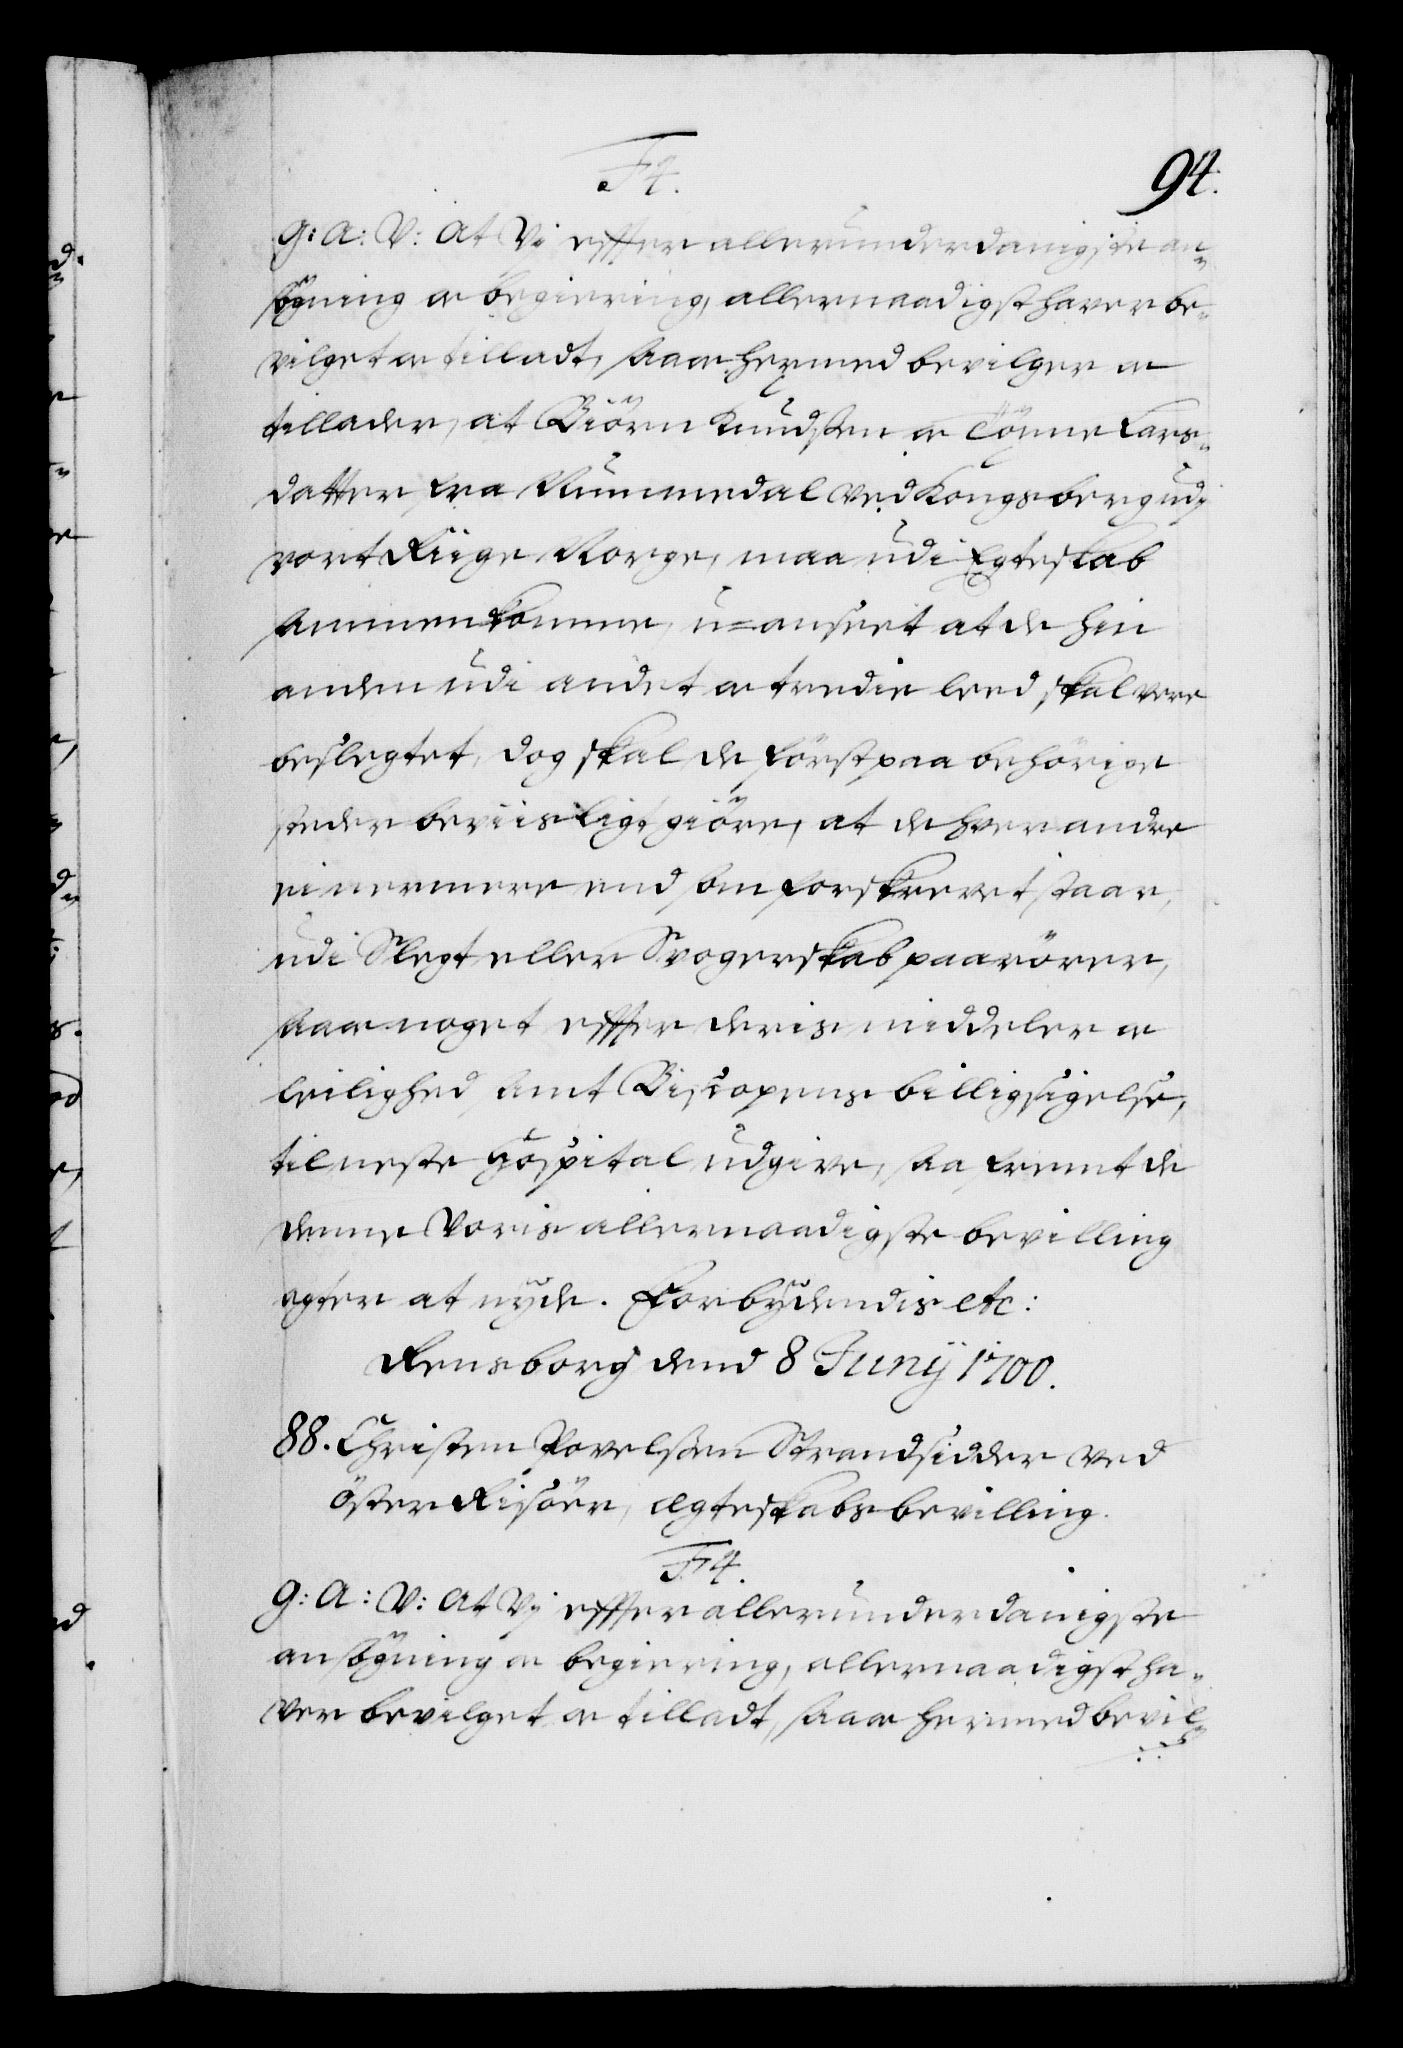 94.
F4.
G: A: V: At Vj effter allerunderdanigste an¬
sögning oc begiering, allernaadigst haver be¬
vilget oc tilladt, saa oc hermed bevilger oc
tillader, at Biörn Knudsen oc Tönne Lars¬
datter fra Nummedal ved Kongsberg udj
vort Riige Norge, maa udi Egteskab
sammenkomme, u=anseet at de hin
anden udi andet oc tredie leed skal vere
beslegtet, dog skal de först paa behörige
steder beviisligt giöre, at de hver andre
ei nermere end som forskrevet staar,
udi Slegt eller Svogerskab paarörer,
saa oc noget effter deris middeler oc
leilighed samt Biscopens billigsigelse,
til neste Hospital udgive, saa fremt de
denne Voris allernaadigste bevilling
agter at nyde. Forbydendis etc:
Rensborg dend 8 Junij 1700.
88. Christen Povelsen Strandsidder ved
Öster Risöer, Egteskabs bevilling.
F4.
G: A: V: At Vj effter allerunderdanigste
ansögning oc begiering, allernaadigst ha¬
ver bevilget oc tilladt, saa oc hermed bevil¬